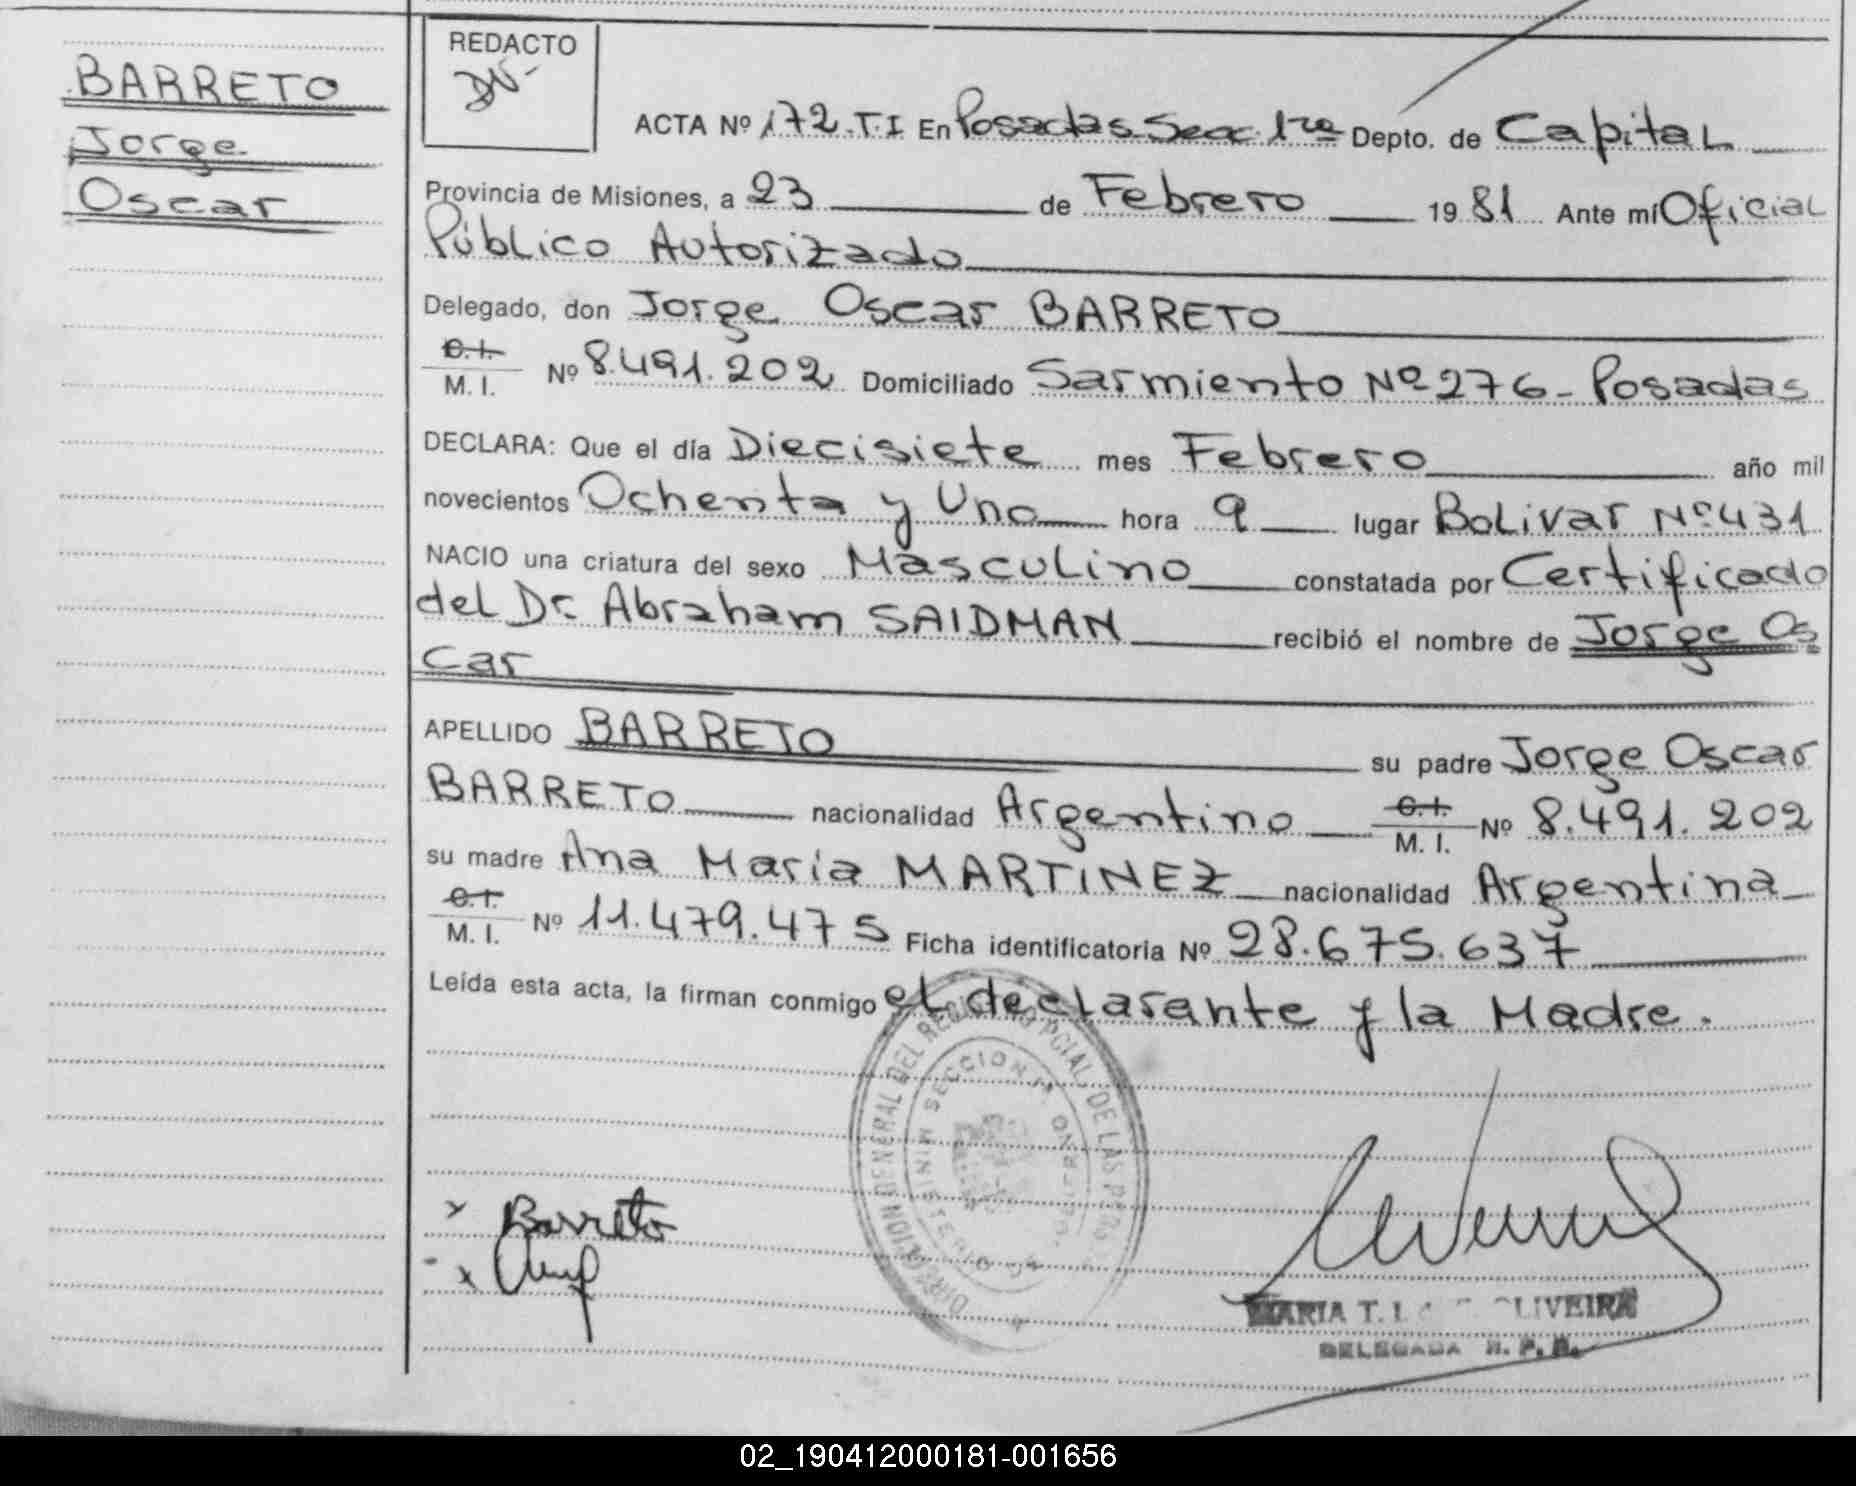 BARRETO
Jorge
Oscar
REDACTO
ACTA Nº 172.T.I En Posadas Secc. 1ra Depto. de Capital
Provincia de Misiones, a 23 de Febrero 1981 Ante mí Oficial
Público Autorizado
Delegado, don Jorge Oscar BARRETO
C.I.
M. I. Nº 8.491.202 Domiciliado Sarmiento Nº 276- Posadas
DECLARA: Que el día Diecisiete mes Febrero año mil
novecientos Ochenta y Uno hora 9 lugar Bolivar Nº 431
NACIO una criatura del sexo Masculino constatada por Certificado
del Dr. Abraham SAIDMAN recibió el nombre de Jorge Os
car
APELLIDO BARRETO su padre Jorge Oscar
BARRETO nacionalidad Argentino C.I. M. I. Nº 8.491.202
su madre Ana María MARTINEZ nacionalidad Argentina
C.I.
M. I. Nº 11.479.475 Ficha identificatoria Nº 28.675.637
Leída esta acta, la firman conmigo el declarante y la Madre.
DIRECCION GENERAL DEL REGISTRO PCIAL. DE LAS
SECCION 1ª
MINISTERIO DE GOBIERNO
x Barreto
x
MARIA T. OLIVEIRA
DELEGADA R. P. P.
02_190412000181-001656